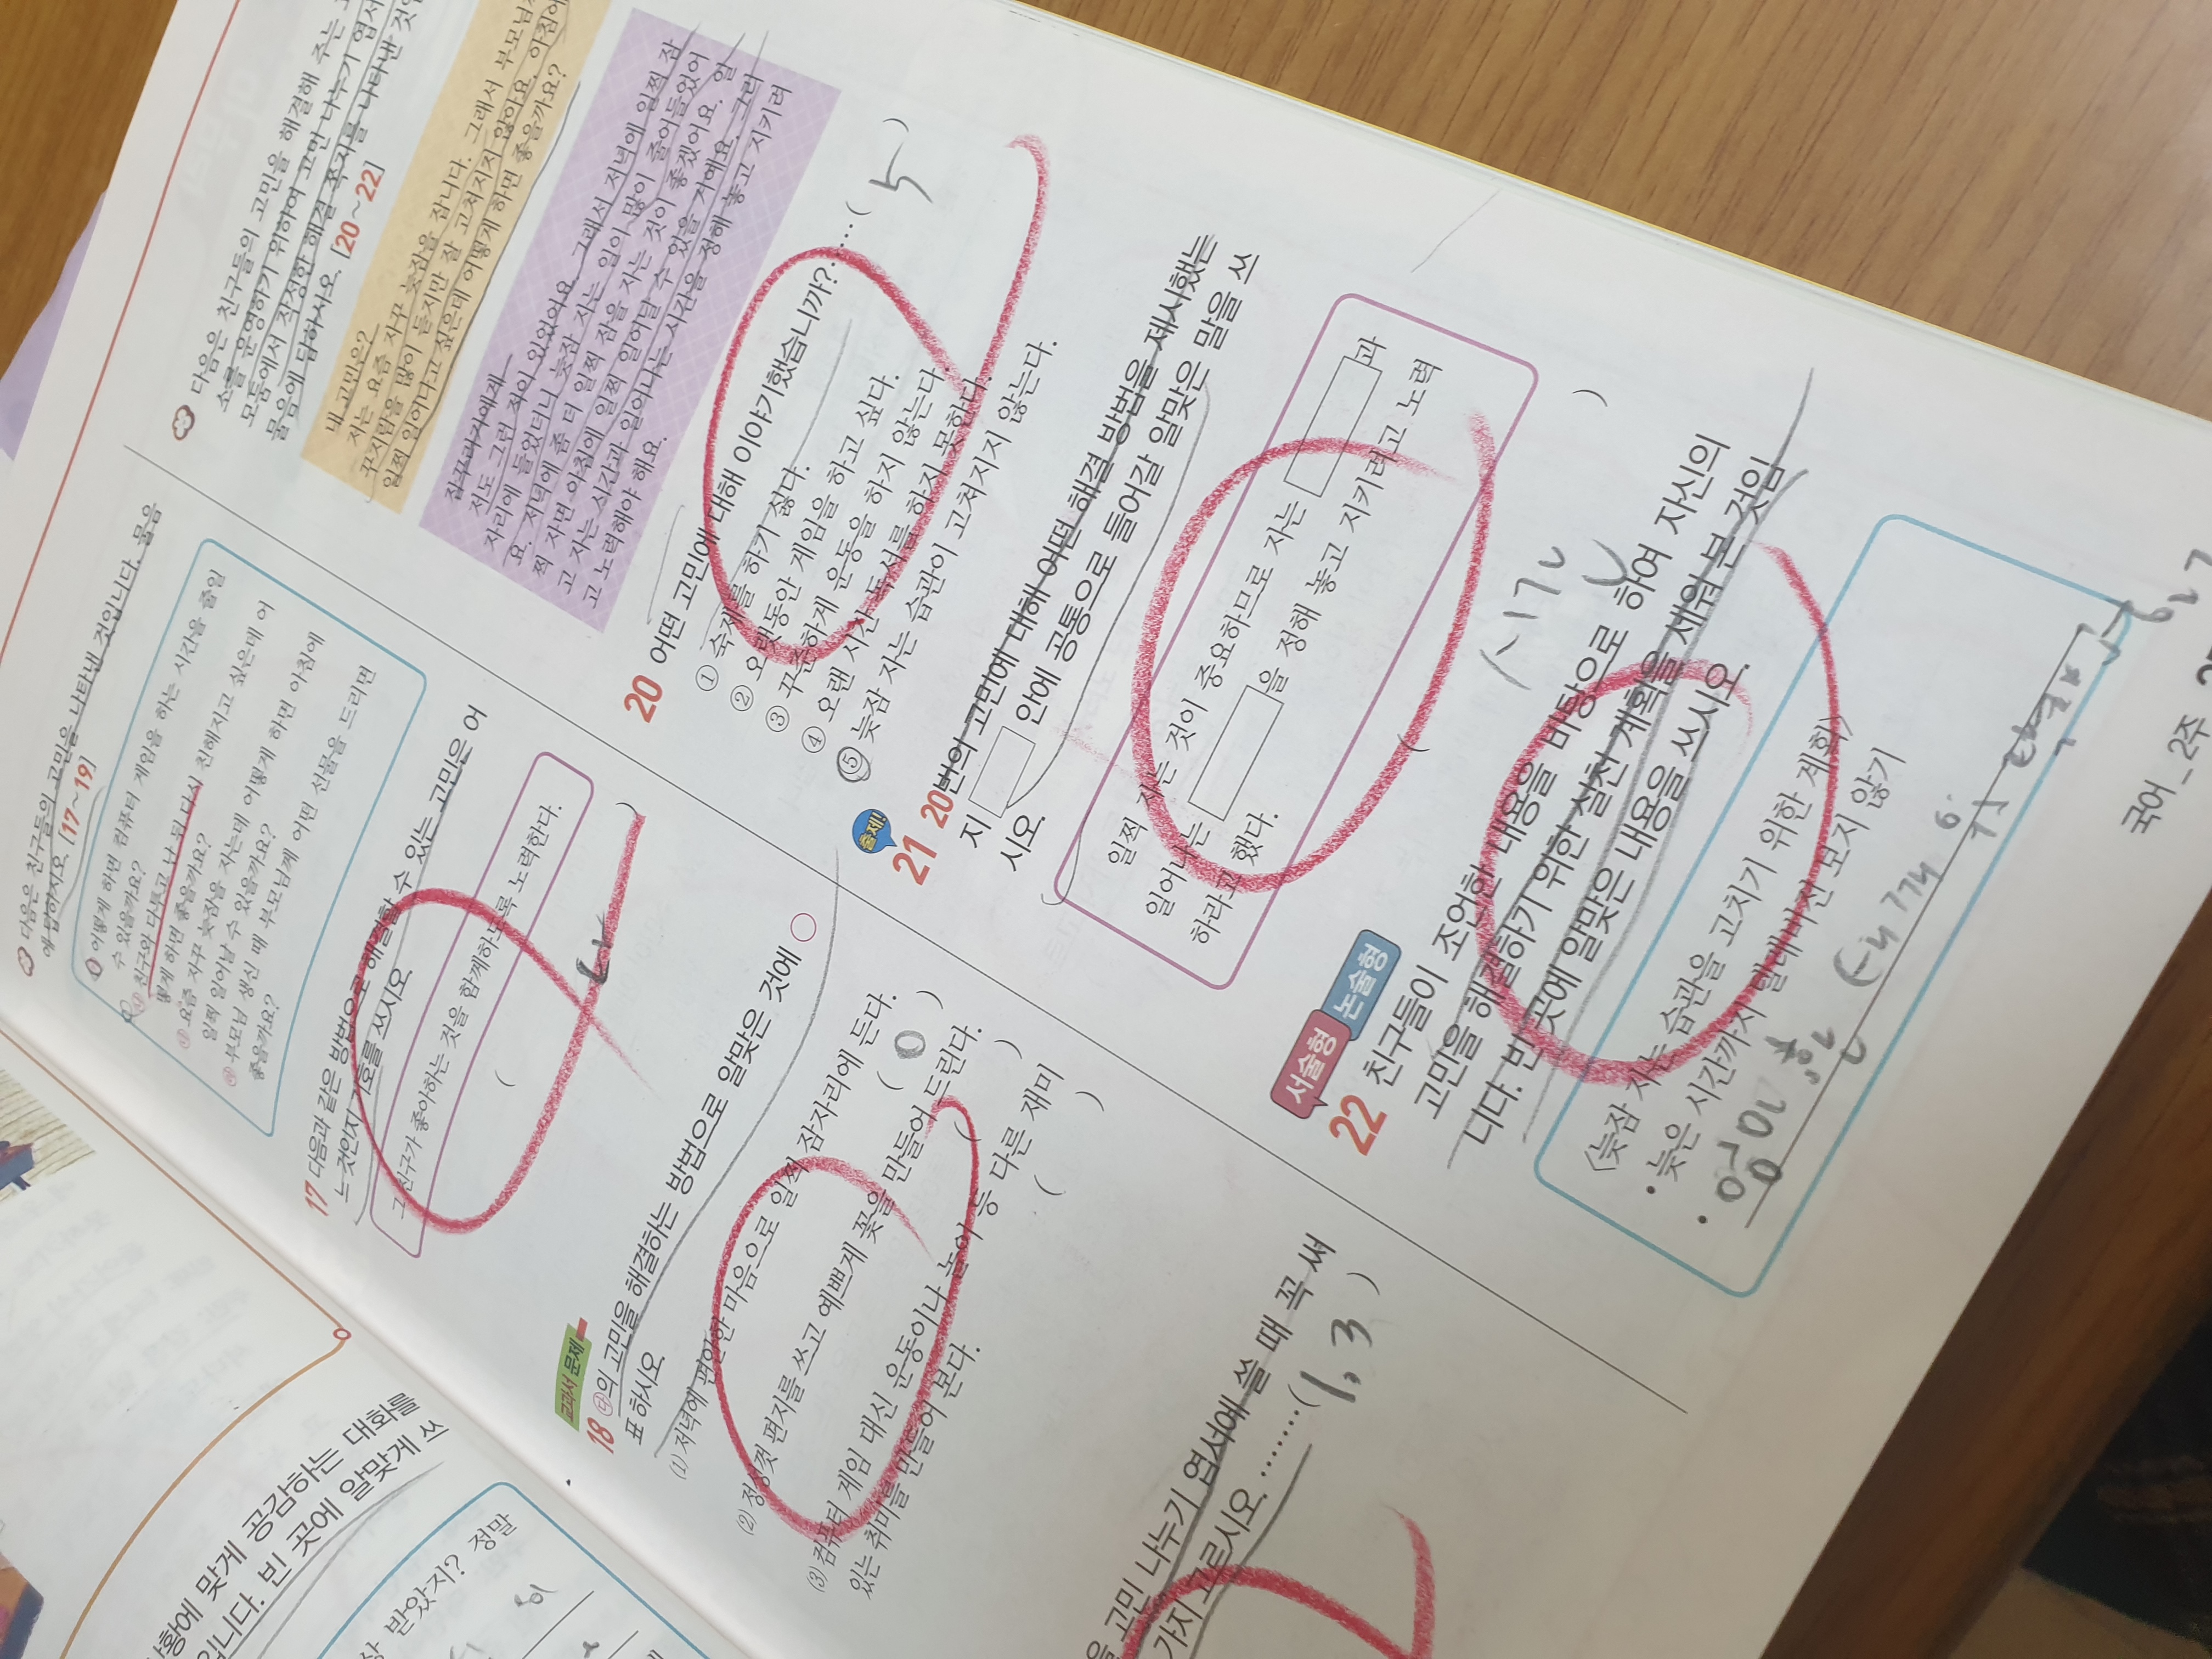 상황에 맞게 공감하는 대화를
입니다. 빈 곳에 알맞게 쓰
상 받았지? 정말
다음은 친구들의 고민을 나타낸 것입니다. 물음
에 답하시오. [17~19]
어떻게 하면 컴퓨터 게임을 하는 시간을 줄일
수 있을까요?
친구와 다투고 난 뒤 다시 친해지고 싶은데 어
떻게 하면 좋을까요?
요즘 자꾸 늦잠을 자는데 어떻게 하면 아침에
일찍 일어날 수 있을까요?
부모님 생신 때 부모님께 어떤 선물을 드리면
좋을까요?
17 다음과 같은 방법으로 해결할 수 있는 고민은 어
느 것인지 기호를 쓰시오.
그 친구가 좋아하는 것을 함께하도록 노력한다.
( 나 )
교과서 문제
18 ㉰의 고민을 해결하는 방법으로 알맞은 것에 ○
표 하시오.
(1) 저녁에 편안한 마음으로 일찍 잠자리에 든다.
( O )
(2) 정성껏 편지를 쓰고 예쁘게 꽃을 만들어 드린다.
( )
(3) 컴퓨터 게임 대신 운동이나 놀이 등 다른 재미
있는 취미를 만들어 본다. ( )
을 고민 나누기 엽서에 쓸 때 꼭 써
가지 고르시오. ········( 1, 3 )
다음은 친구들의 고민을 해결해 주는
소를 운영하기 위하여 고민 나누기 엽서
모둠에서 작성한 해결 쪽지를 나타낸 것
물음에 답하시오. [20~22]
내 고민은?
저는 요즘 자꾸 늦잠을 잡니다. 그래서 부모님
꾸지람을 많이 듣지만 잘 고쳐지지 않아요. 아침에
일찍 일어나고 싶은데 어떻게 하면 좋을까요?
잠꾸러기에게
저도 그런 적이 있었어요. 그래서 저녁에 일찍 잠
자리에 들었더니 늦잠 자는 일이 많이 줄어들었어
요. 저녁에 좀 더 일찍 잠을 자는 것이 좋겠어요. 일
찍 자면 아침에 일찍 일어날 수 있을 거예요. 그리
고 자는 시간과 일어나는 시간을 정해 놓고 지키려
고 노력해야 해요.
20 어떤 고민에 대해 이야기했습니까? ····( 5 )
① 숙제를 하기 싫다.
② 오랫동안 게임을 하고 싶다.
③ 꾸준하게 운동을 하지 않는다.
④ 오랜 시간 독서를 하지 못한다.
⑤ 늦잠 자는 습관이 고쳐지지 않는다.
출제!
21 20번의 고민에 대해 어떤 해결 방법을 제시했는
지 안에 공통으로 들어갈 알맞은 말을 쓰
시오.
일찍 자는 것이 중요하므로 자는 과
일어나는 을 정해 놓고 지키려고 노력
하라고 했다.
( 시간 )
서술형 논술형
22 친구들이 조언한 내용을 바탕으로 하여 자신의
고민을 해결하기 위한 실천 계획을 세워 본 것입
니다. 빈 곳에 알맞은 내용을 쓰시오.
〈늦잠 자는 습관을 고치기 위한 계획〉
• 늦은 시간까지 텔레비전 보지 않기
•
국어_2주